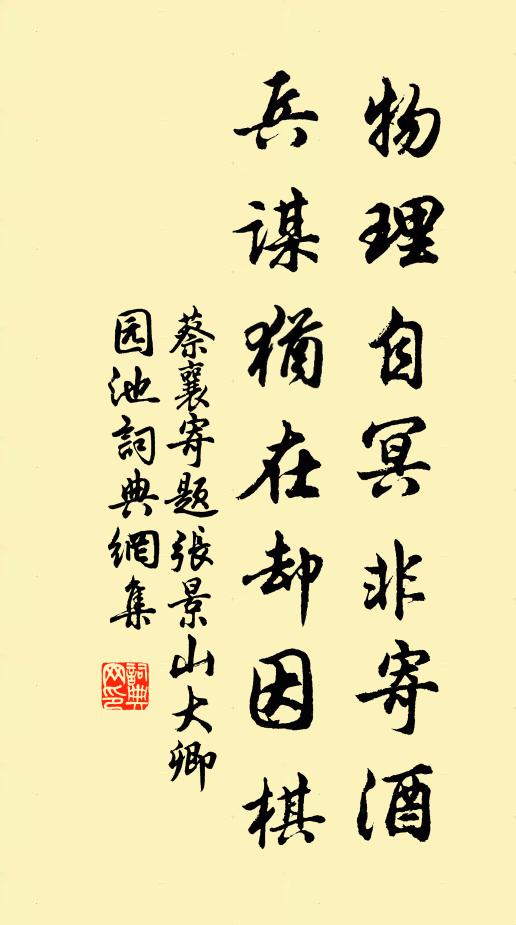 物理自冥非寄酒
兵谋猶在却因棋
蔡襄寄题張景山大卿
园池詞典網集
詞典
网印